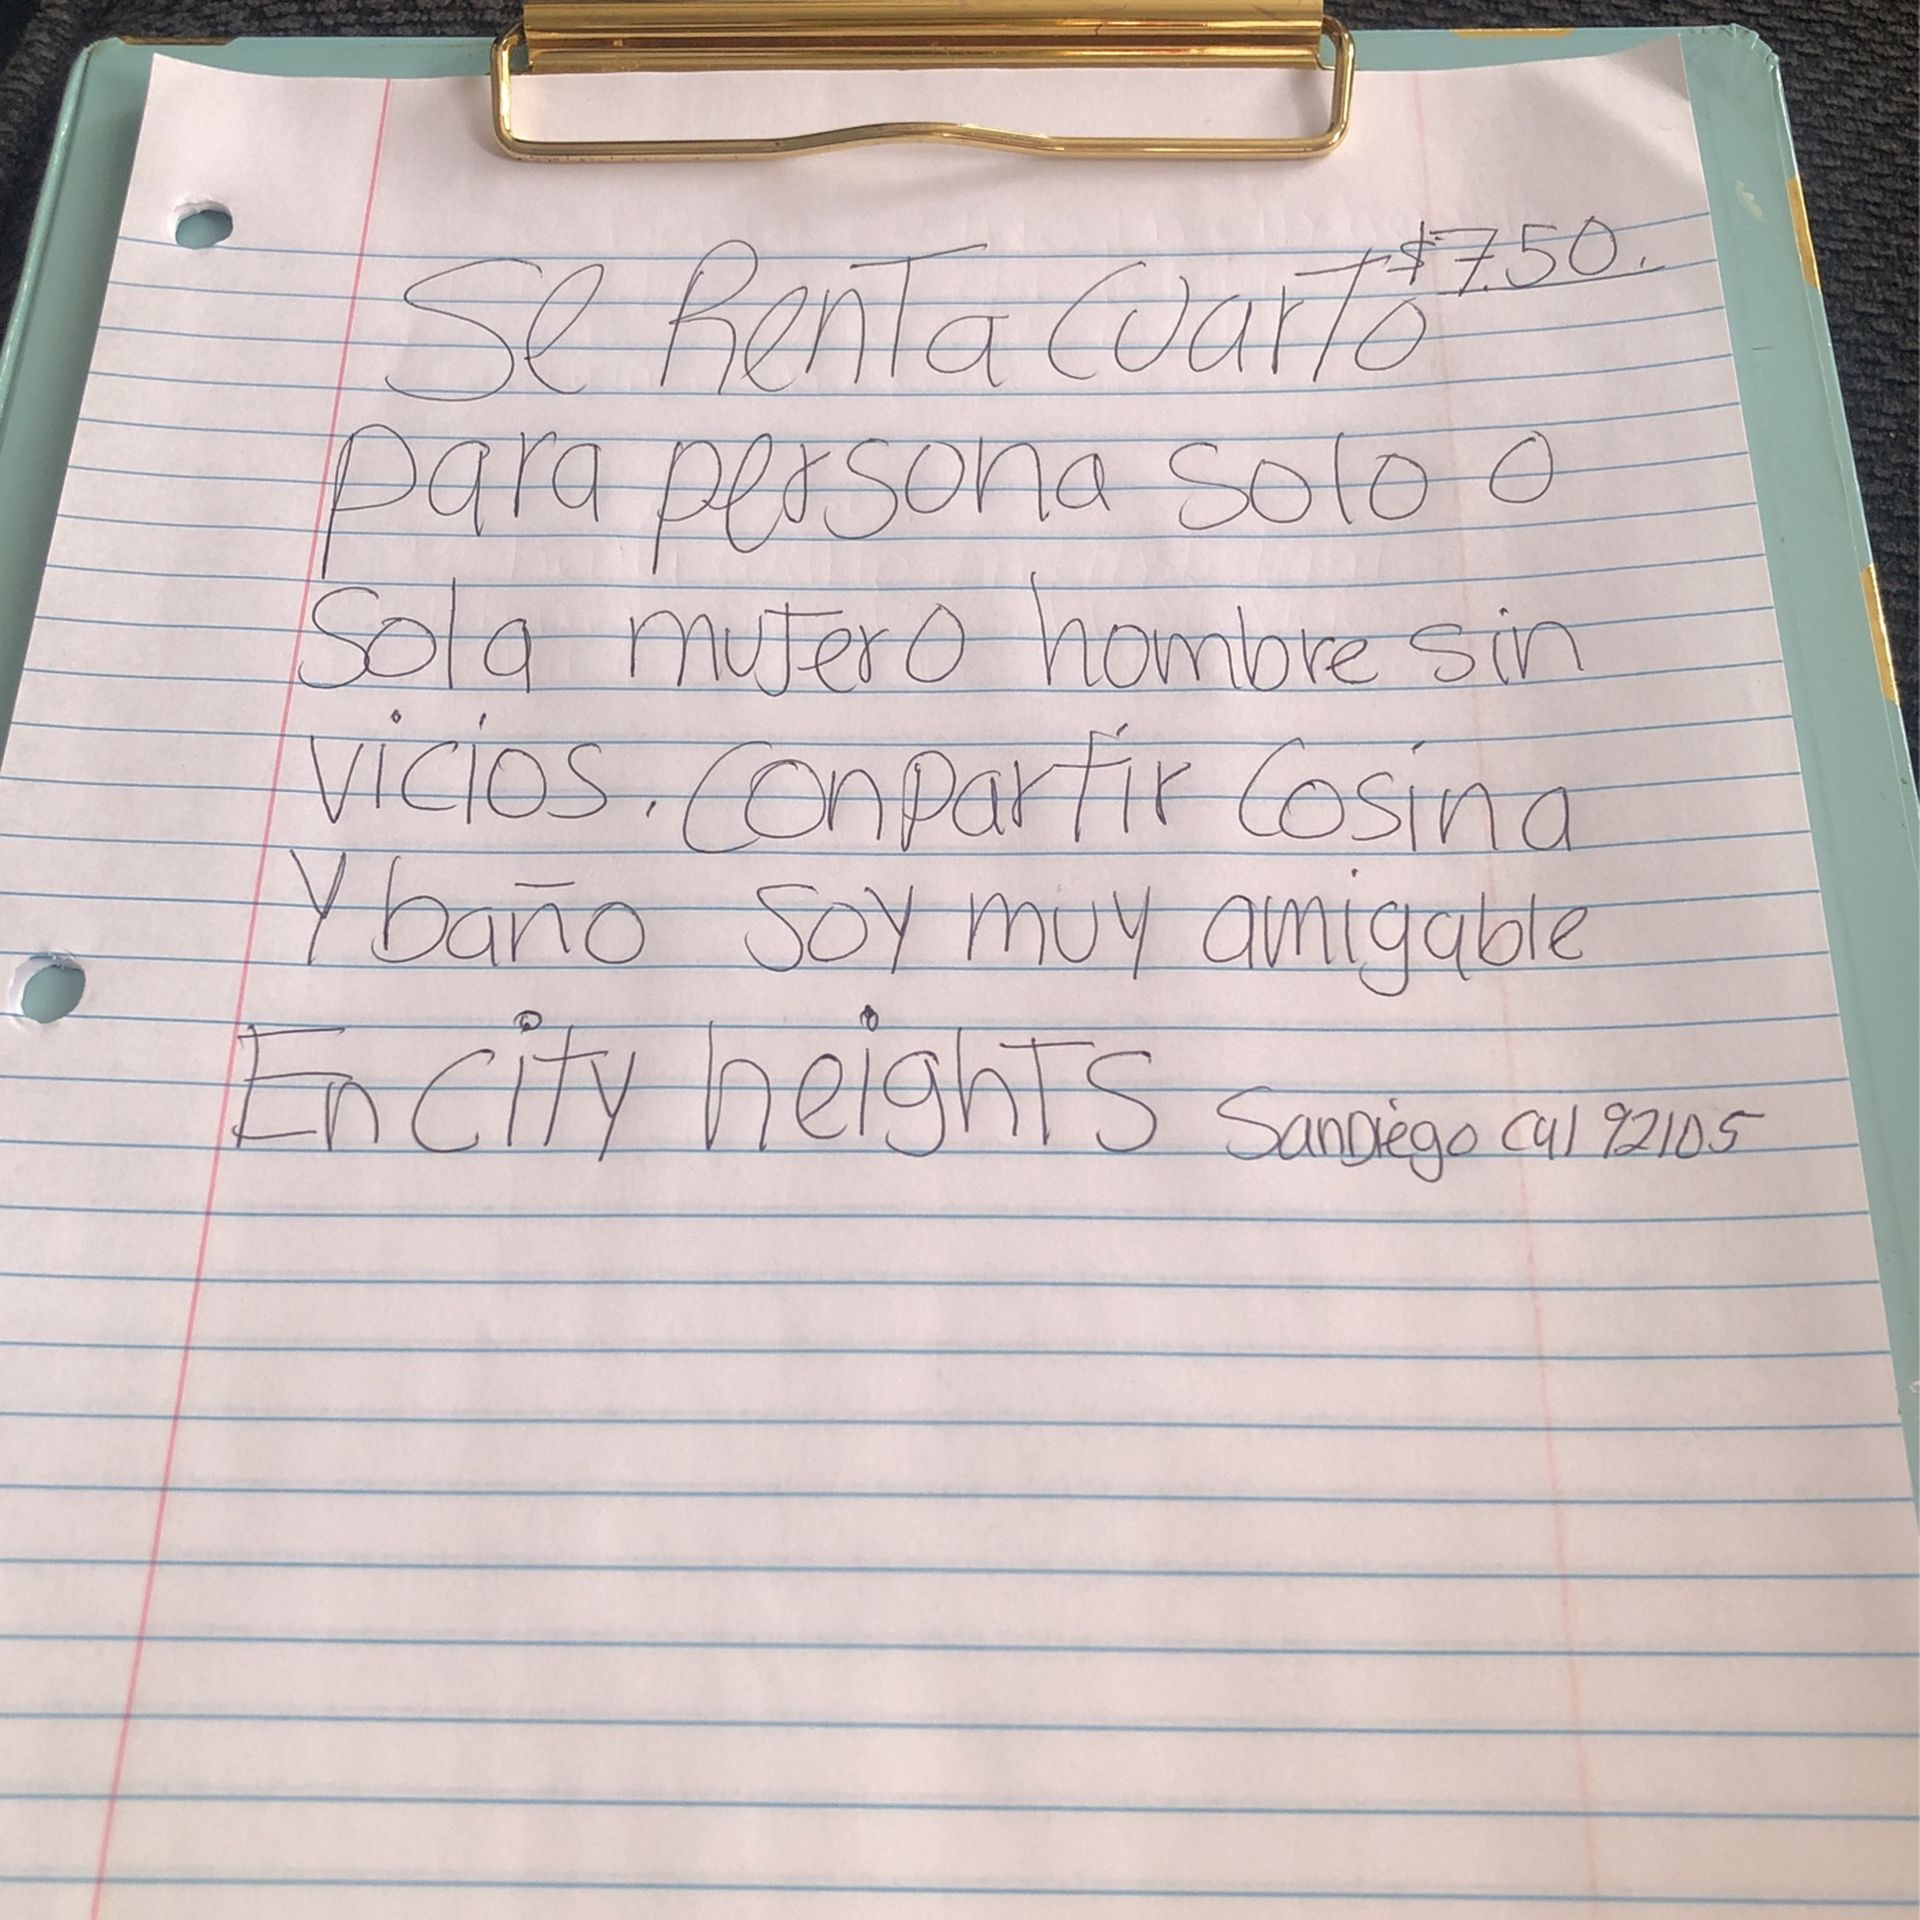 Se Renta Cuarto $7.50.
para persona solo o
Sola mujer o hombre sin
vicios. Conpartir Cosina
Y baño soy muy amigable
En city heights San Diego Cal 92105